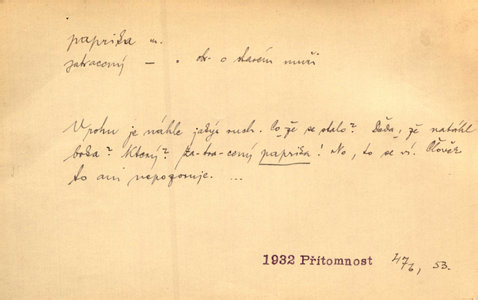 paprika m.
zatracený — . ob. o starém muži
V pohu je náhle jakýsi ruch. Co že se stalo? Děda, že natáhl
boba? Který? Za-tra-cený paprika! No, to se ví. Člověk
to ani nepozoruje. ...
1932 Přítomnost 47/6, 53.